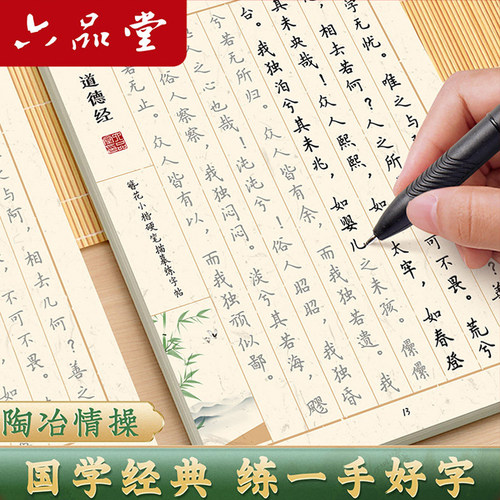 六品堂
字无忧。唯之与
相去若何？人之所
可不畏。荒兮
其未央哉！众人熙熙，
太宰，如春登
台。我独泊兮其未兆，如婴儿之未孩。儽儽
兮若无所归。众人皆有余，而我独若遗。我
之心也哉！沌沌兮！俗人昭昭，我独昏
俗人察察，我独闷闷。淡兮其若海，飂
兮若无止。众人皆有以，而我独顽似鄙。
道德经
簪花小楷硬笔描摹练字帖
13
之与阿，相去几何？善之
不可不畏。
陶冶情操
国学经典 练一手好字